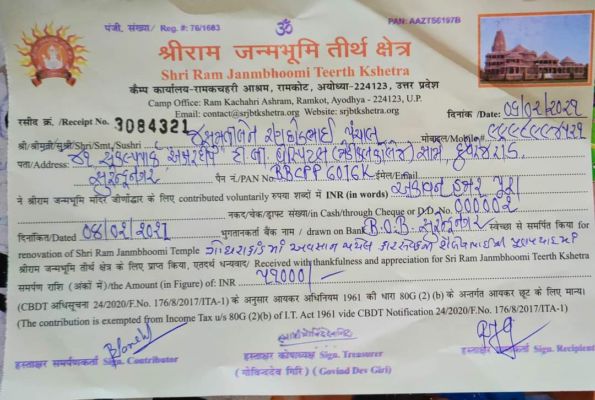 पंजी. संख्या/ Reg. #: 76/1683
ॐ
PAN: AAZTS6197B
श्रीराम जन्मभूमि तीर्थ क्षेत्र
Shri Ram Janmbhoomi Teerth Kshetra
कैम्प कार्यालय-रामकचहरी आश्रम, रामकोट, अयोध्या-224123, उत्तर प्रदेश
Camp Office: Ram Kachahri Ashram, Ramkot, Ayodhya - 224123, U.P.
Email: contact@srjbtkshetra.org Website: srjbtkshetra.org
रसीद क्र. / Receipt No. 3084321
दिनांक /Date: 05/02/2021
श्री/श्रीमती/सुश्री/Shri/Smt./Sushri
मोबइल/Mobile#
पता/Address:
સુરેન્દ્રનગર पैन नं./PAN No. BBCPP6016K ईमेल/Email:
ने श्रीराम जन्मभूमि मंदिर जीर्णोद्धार के लिए contributed voluntarily रुपया शब्दों में INR (in words) એકાવન હજાર પૂરા
नकद/चेक/ड्राफ्ट संख्या/in Cash/through Cheque or D/D. No. 000002
दिनांकित/Dated 04/02/2021 भुगतानकर्ता बैंक नाम / drawn on Bank B.O.B સુરેન્દ્રનગર स्वेच्छा से समर्पित किया for
renovation of Shri Ram Janmbhoomi Temple
श्रीराम जन्मभूमि तीर्थ क्षेत्र के लिए प्राप्त किया, एतदर्थ धन्यवाद/ Received with thankfulness and appreciation for Sri Ram Janmbhoomi Teerth Kshetra
समर्पण राशि (अंकों में)/the Amount (in Figure) of: INR ५१०००/-
(CBDT अधिसूचना 24/2020/F.No. 176/8/2017/ITA-1) के अनुसार आयकर अधिनियम 1961 की धारा 80G (2) (b) के अन्तर्गत आयकर छूट के लिए मान्य।
(The contribution is exempted from Income Tax u/s 80G (2)(b) of I.T. Act 1961 vide CBDT Notification 24/2020/F.No. 176/8/2017/ITA-1)
हस्ताक्षर समर्पणकर्ता Sign. Contributor
हस्ताक्षर कोषाध्यक्ष Sign. Treasurer
हस्ताक्षर संग्रहकर्ता Sign. Recipient
(गोविन्ददेव गिरि) (Govind Dev Giri)